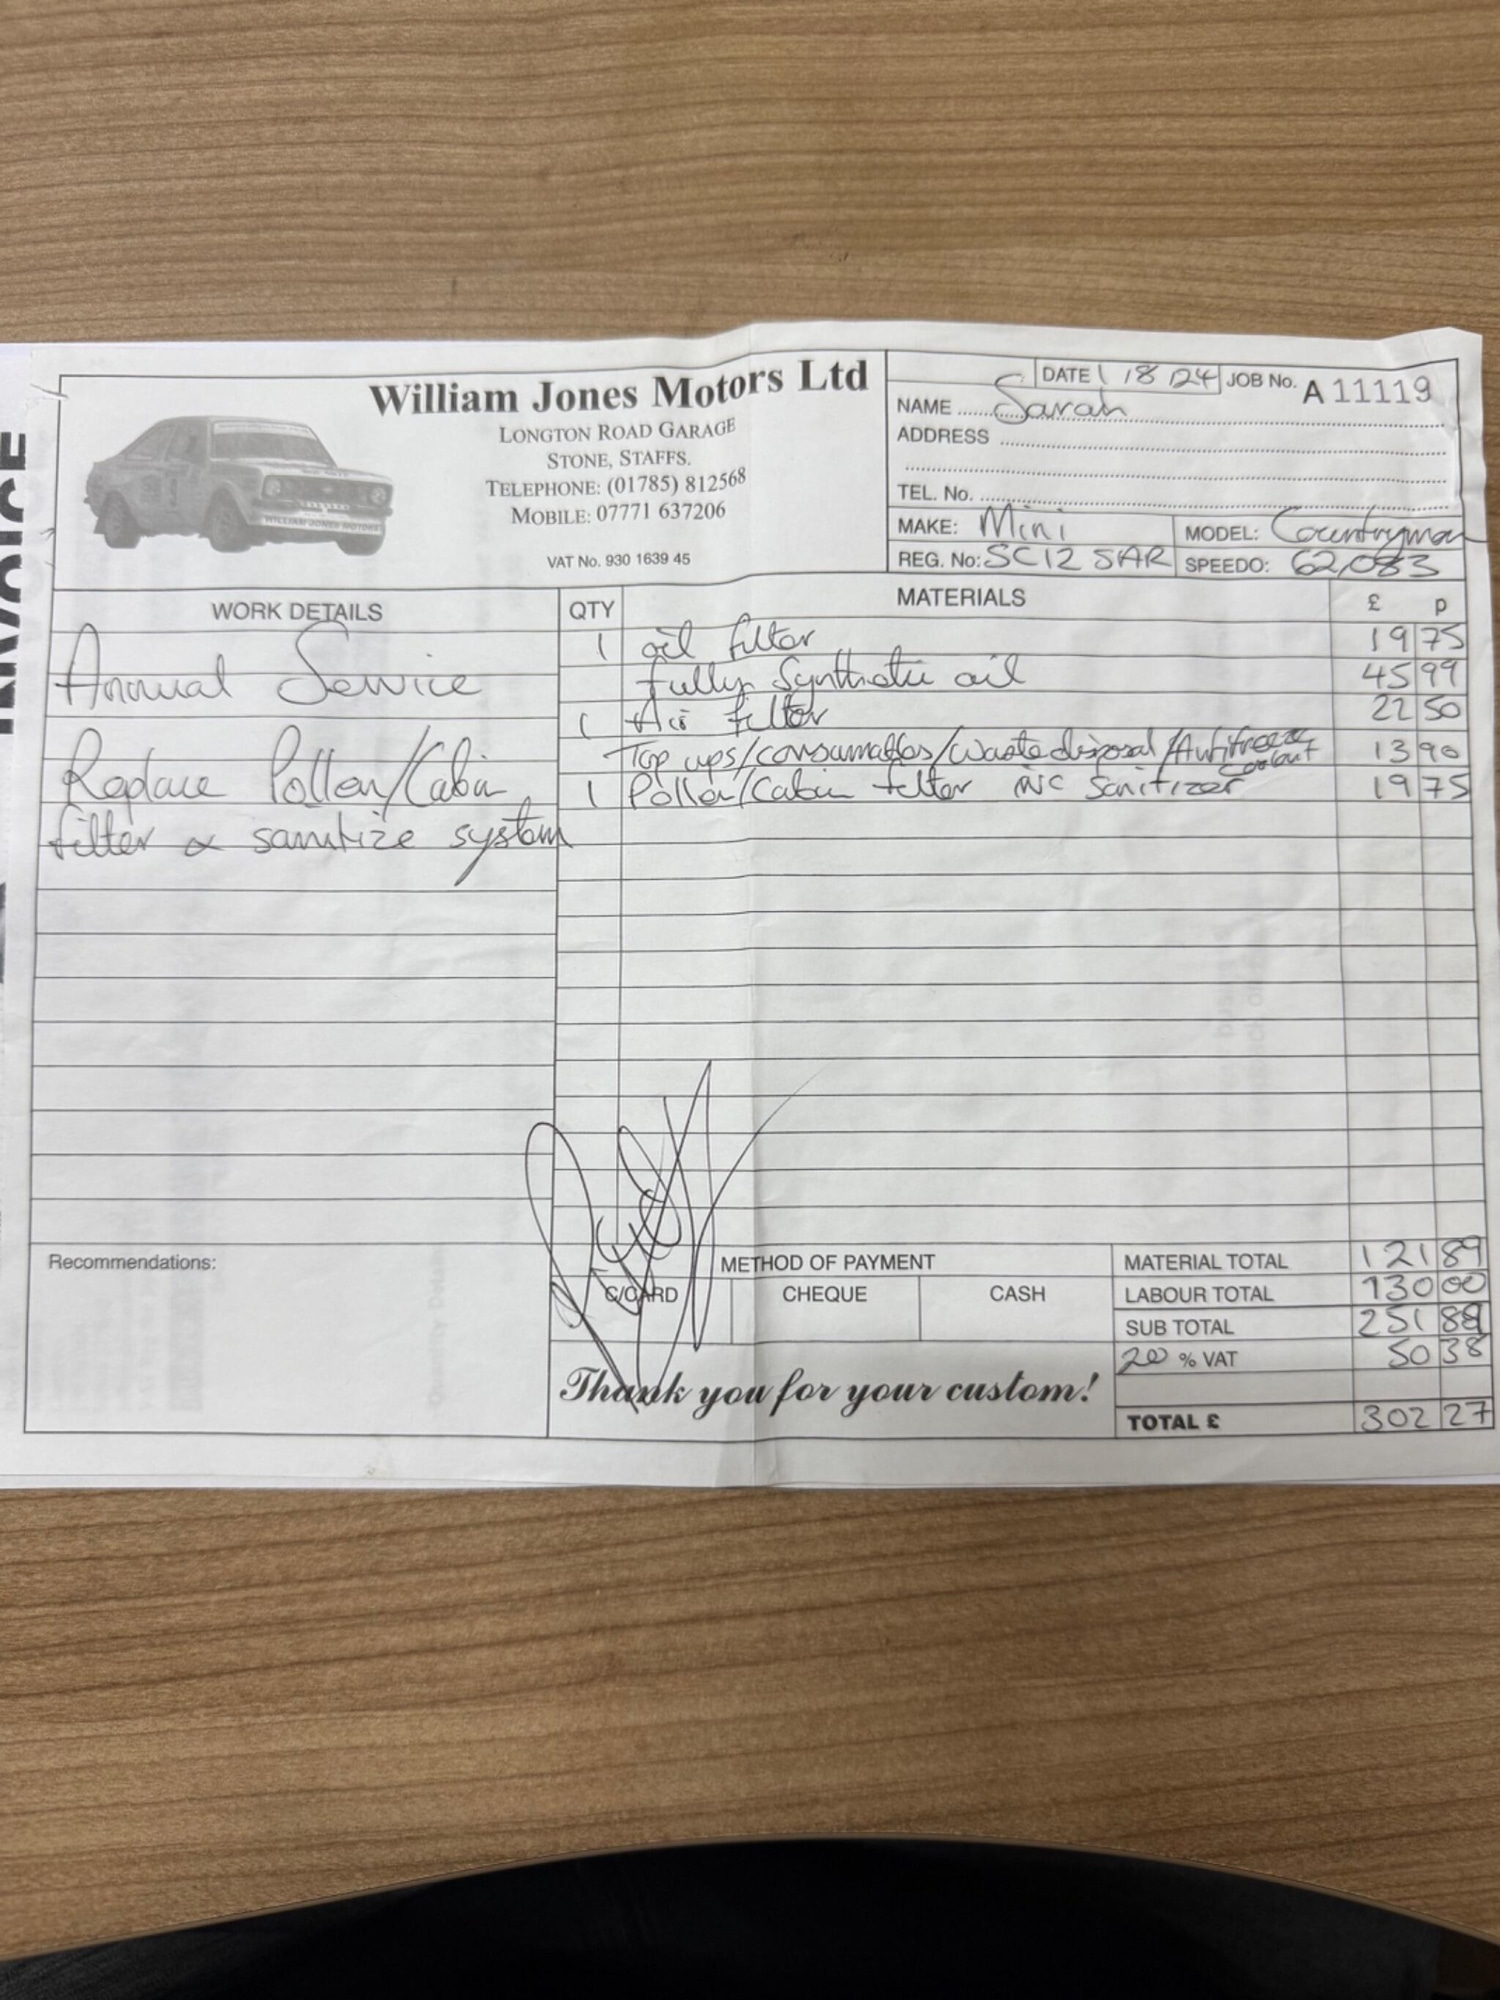 INVOICE
William Jones Motors Ltd
LONGTON ROAD GARAGE
STONE, STAFFS.
TELEPHONE: (01785) 812568
MOBILE: 07771 637206
VAT No. 930 1639 45
WILLIAM JONES MOTORS
DATE 1/8/24 JOB No. A 11119
NAME Sarah
ADDRESS
TEL. No.
MAKE: Mini MODEL: Countryman
REG. No: SC12 SAR SPEEDO: 62,083
WORK DETAILS QTY MATERIALS £ p
1 oil filter 19 75
Annual Service Fully Synthetic oil 45 99
1 Air filter 22 50
Top ups/consumables/waste disposal/Antifreeze coolant 13 90
Replace Pollen/Cabin 1 Pollen/Cabin filter INC Sanitizer 19 75
filter & sanitize system
Recommendations:
METHOD OF PAYMENT MATERIAL TOTAL 121 89
C/CARD CHEQUE CASH LABOUR TOTAL 130 00
SUB TOTAL 251 89
20 % VAT 50 38
Thank you for your custom!
TOTAL £ 302 27